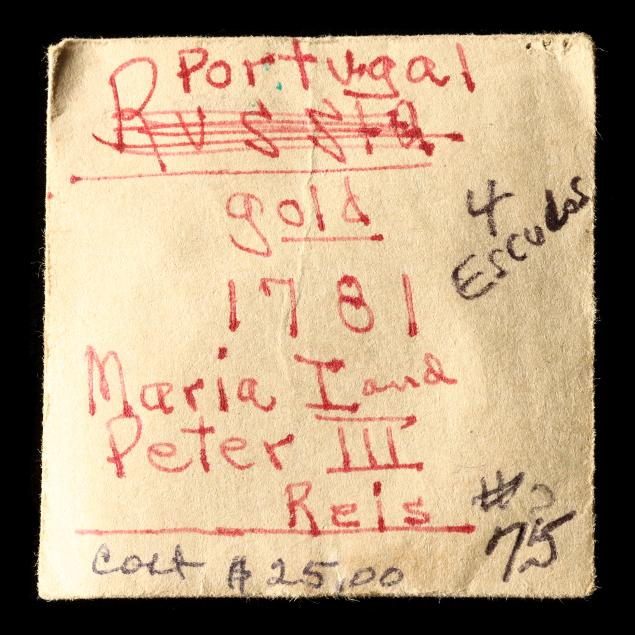 Portugal
Russia
gold
1781
Maria I and
Peter III
Reis
4
Esculos
#
75
Cost $25.00